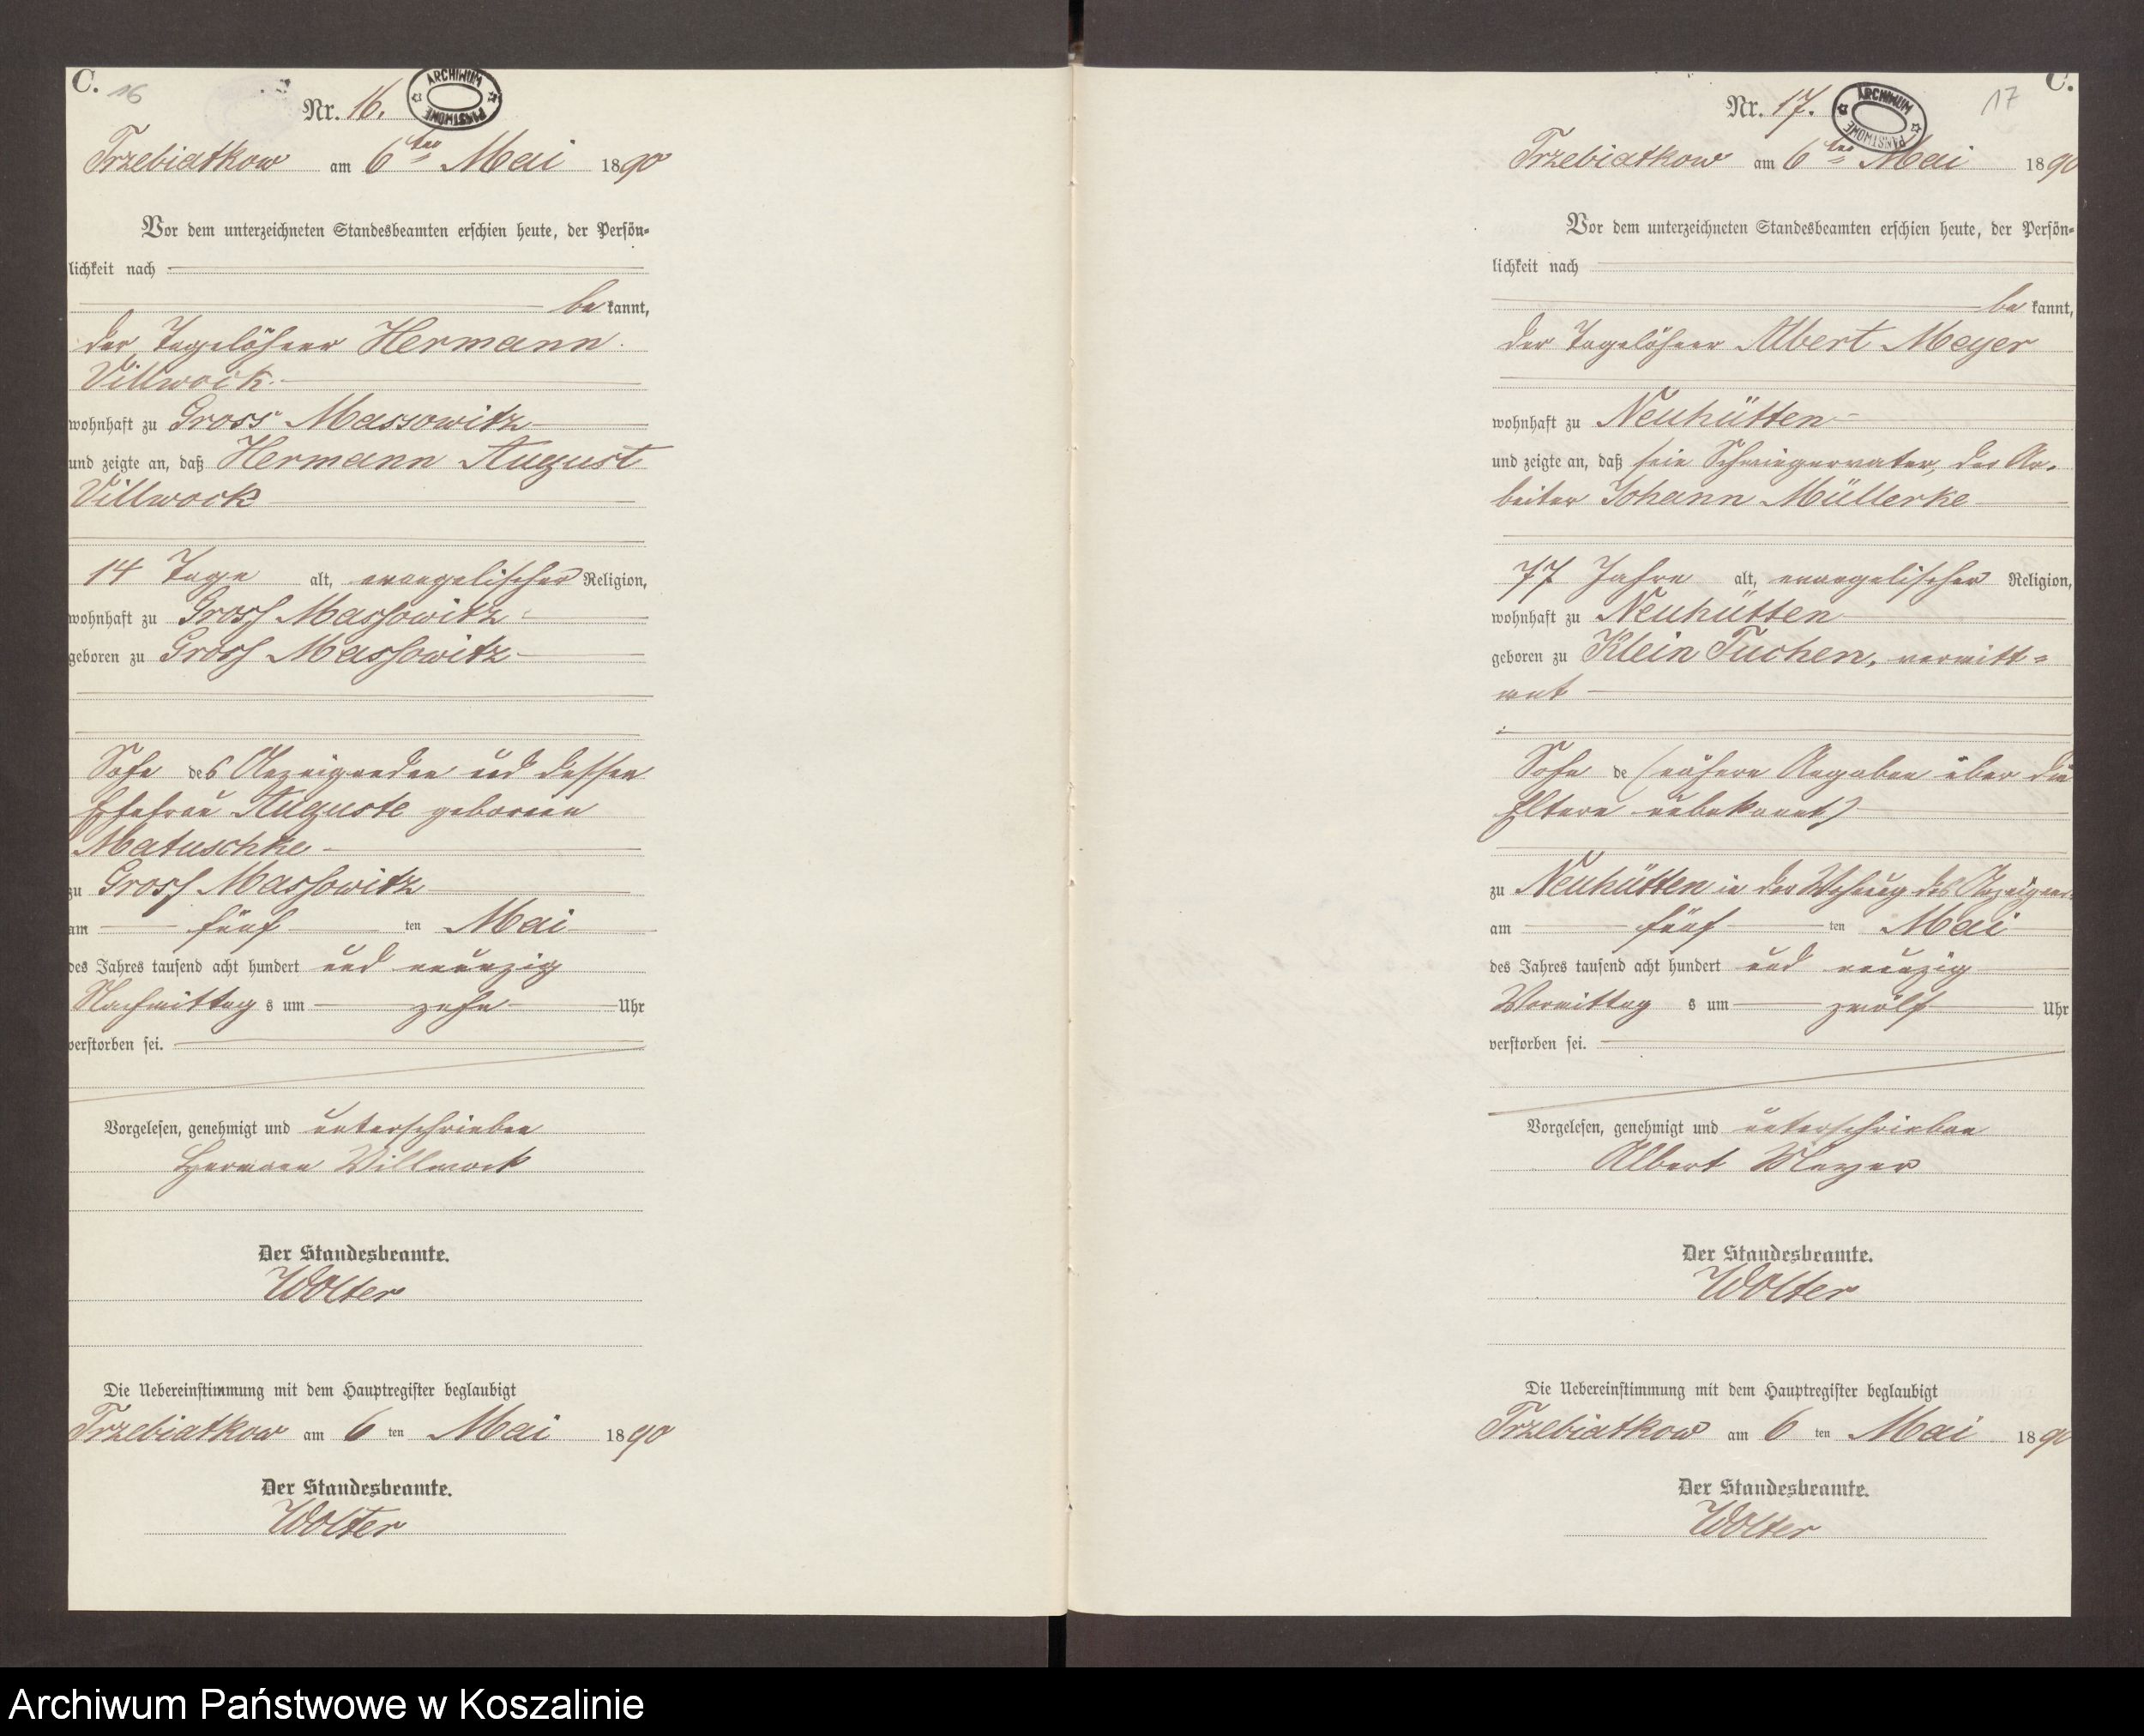 C. 16
Nr. 16.
ARCHIWUM PAŃSTWOWE
Trzebiatkow am 6ten Mai 1890
Vor dem unterzeichneten Standesbeamten erschien heute, der Persön=
lichkeit nach
be kannt,
der Tagelöhner Hermann
Villwock.
wohnhaft zu Gross Massowitz
und zeigte an, daß Hermann August
Villwock
14 Tage alt, evangelischer Religion,
wohnhaft zu Gross Massowitz
geboren zu Gross Massowitz
Sohn des Anzeigenden und dessen
Ehefrau Auguste geborenen
Matuschke
zu Gross Massowitz
am fünf ten Mai
des Jahres tausend acht hundert und neunzig
Nachmittag s um zehn Uhr
verstorben sei.
Vorgelesen, genehmigt und unterschrieben
Hermann Villwock
Der Standesbeamte.
Wolter
Die Uebereinstimmung mit dem Hauptregister beglaubigt
Trzebiatkow am 6 ten Mai 1890
Der Standesbeamte.
Wolter
C.
17
Nr. 17.
ARCHIWUM PAŃSTWOWE
Trzebiatkow am 6ten Mai 1890
Vor dem unterzeichneten Standesbeamten erschien heute, der Persön=
lichkeit nach
be kannt,
der Tagelöhner Albert Meyer
wohnhaft zu Neuhütten
und zeigte an, daß sein Schwiegervater, der Ar-
beiter Johann Müllerke
77 Jahre alt, evangelischer Religion,
wohnhaft zu Neuhütten
geboren zu Klein Tuchen, verwitt=
wet
Sohn de (nähere Angaben über die
Eltern unbekannt)
zu Neuhütten in der Wohnung des Anzeigen
am fünf ten Mai
des Jahres tausend acht hundert und neunzig
Vormittag s um zwölf Uhr
verstorben sei.
Vorgelesen, genehmigt und unterschrieben
Albert Meyer
Der Standesbeamte.
Wolter
Die Uebereinstimmung mit dem Hauptregister beglaubigt
Trzebiatkow am 6 ten Mai 1890
Der Standesbeamte.
Wolter
Archiwum Państwowe w Koszalinie